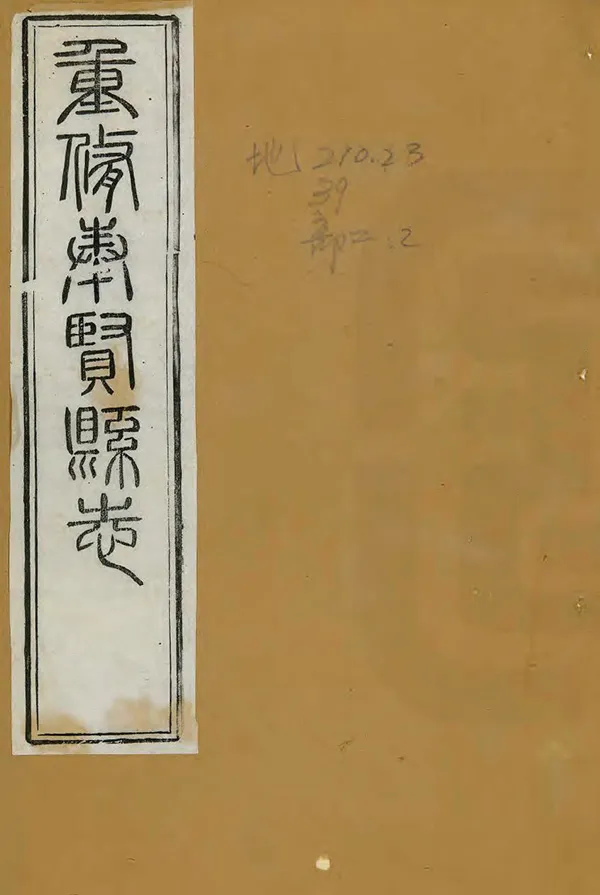 重修奉賢縣志
地 210.23
39
部二.2